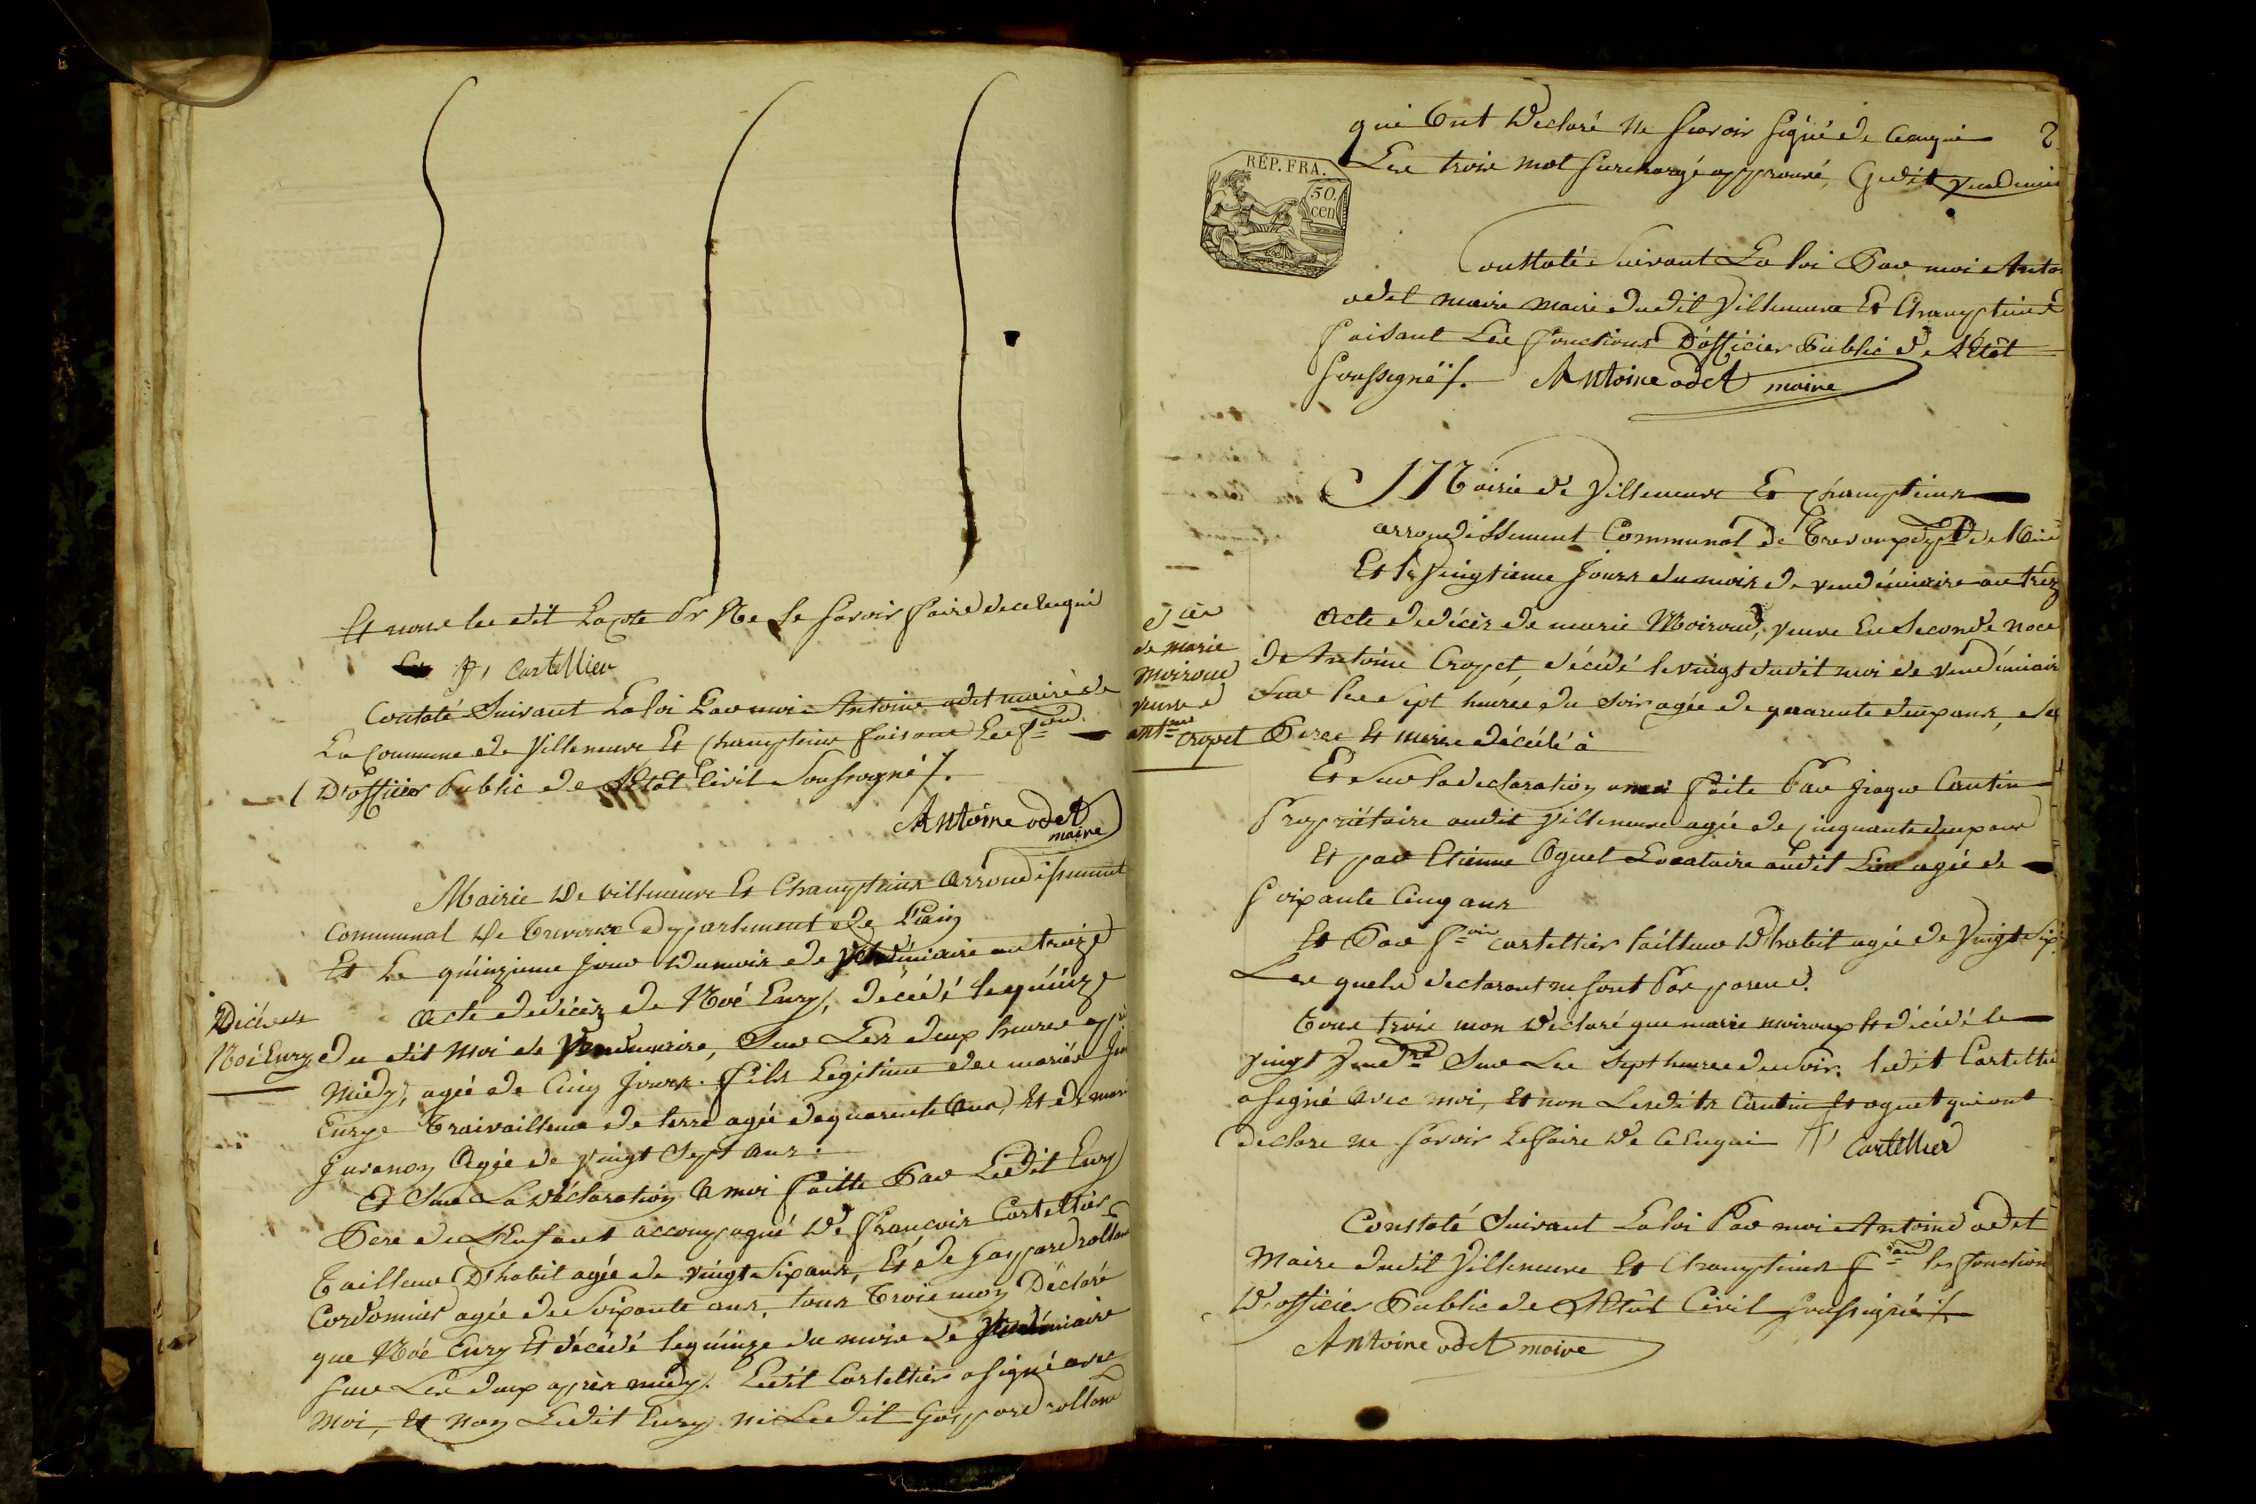 Et nous les dit Lacote Pr Ne le Savoir faire de ce Enquis
fs Cartellier
Contaté Suivant La loi Par moi Antoine odet maire de
La Commune de Villeneuve Et Champteins faisant Les f=ons
D'officier Public de L'Etat Civil Soussigné /.
Antoine odet
maire
Mairie De villeneuve Et Champteins Arrondissement
Communal De Trevoux Departement de L'ain
Et Le quinzieme Jour Dumois de vendéminaire an treize
Décès de
Noé Eury
Acte de décès de Noé Eury, décédé le quinze
du dit Moi de Vendeminaire, Sur Les deux heures après
Midy, agée de Cinq Jours. fils Legitime de mariés
Eurye Traivailleur de terre agée de quarente Ans, Et de mari
Juranon Agée de vingt Sept Ans.
Et Sur La déclaration A moi faitte Par Ledit Eury
Pere de L'Enfant accompagné De francois Cartellier
Tailleur D'habit agée de vingt Sixans, Et de Gaspard rolland
Cordonnier agée de Soixante ans. tous Trois mon Déclaré
que Noé Eury Et décédé le quinze du mois de Vendéminaire
Sur Les deux après midy. Ledit Cartellier a signé avec
Moi, Et non Ledit Eury ni Le dit Gaspard rolland
qui Ont Declaré Ne Savoir signé de Cenquis
2
RÉP. FRA.
50.
cen
Les trois mot Surchargé approuvé,
Conttaté Suivant La loi Par moi Antoi
odet maire maire dudit Villeneuve Et Champteins
faisant Les fonctions D'officier Public de L'Etat
Soussigné /. Antoine odet maire
Mairie de Villeneuve Et Champteins
arrondissement Communal de Trevoux
Et le Vingtieme Jours du mois de vendéminaire an treiz
décès
de marie
Moiroud
veuve d
antne Cropet
Acte de décès de marie Moiroud, veuve En Seconde noce
de Antoine Cropet, décédé le vingt dudit moi de vendéminair
Sur les Sept heures du Soir agée de quarente deux ans, de
Peres Et meres décédé à
Et Sur la declaration a moi faite Par Jiaque Cautin
Propriétaire audit Villeneuve agée de Cinquante deux ans
Et par Etienne Oguet Locataire audit Lieu agée de
Soixante Cinq ans
Et Par f=ois Cartellier tailleur D'habit agée de Vingt Six
Les quels declarant ne sont Pas parens.
tous trois mon Declaré que marie moiroux Et décédé le
vingt Vend=re Sur Les Sept heures du Soir. ledit Cartellier
a signé avec moi, Et non Lesdits Cautin Et oguet qui ont
declare ne Savoir Le faire De Cenquis fs Cartellier
Constaté Suivant La loi Par moi Antoine odet
Maire dudit Villeneuve Et Champteins f=ant les fonction
D'officier Public de L'Etat Civil soussigné /.
Antoine odet maire